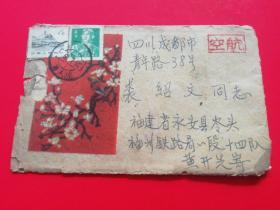 四川成都市
航空
青年路—38号
裘绍文同志
福建省永安县岑头
福州铁路局一段十四队
黄开先寄